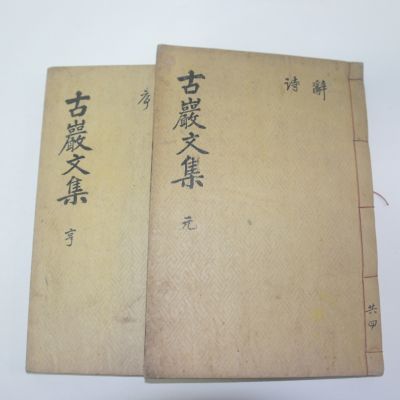 古巖文集 亨
序
古巖文集 元
辭
詩
共四